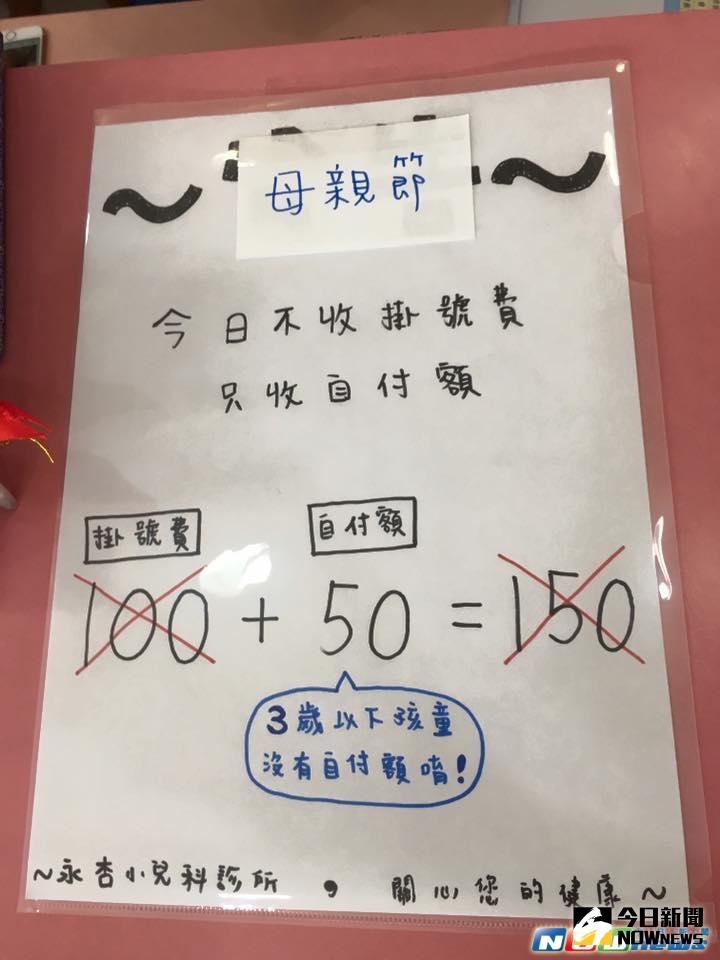 ～母親節～
今日不收掛號費
只收自付額
掛號費 自付額
100 + 50 = 150
3歲以下孩童
沒有自付額唷!
~永杏小兒科診所，關心您的健康~
今日新聞
NOWnews